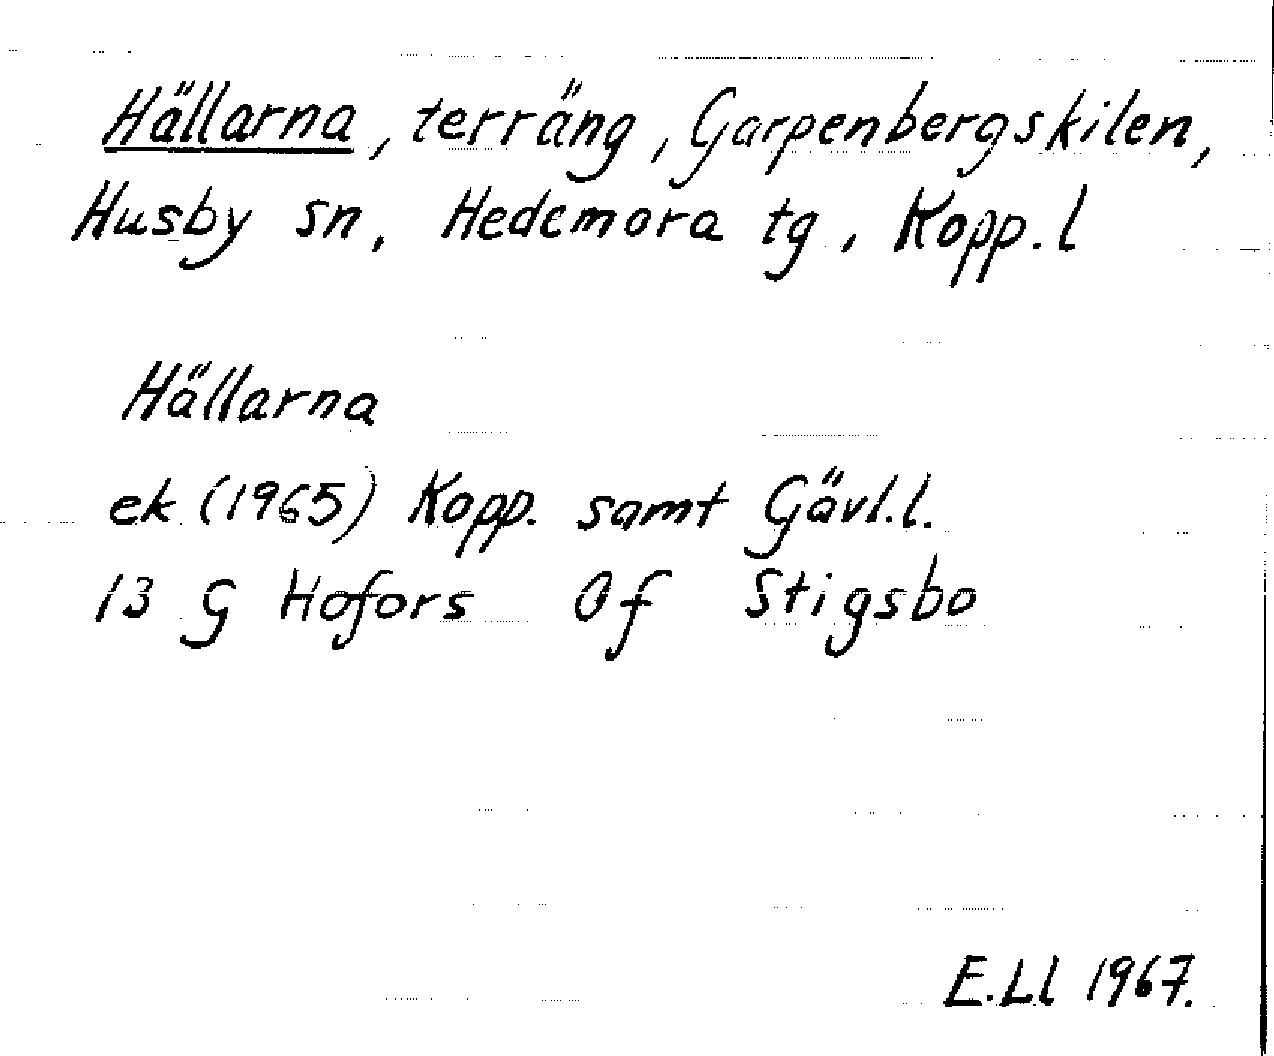 Hällarna, terräng, Garpenbergskilen,
Husby sn, Hedemora tg, Kopp.l
Hällarna
ek (1965) Kopp. samt Gävl.l.
13 G Hofors 0f Stigsbo
E.Ll 1967.